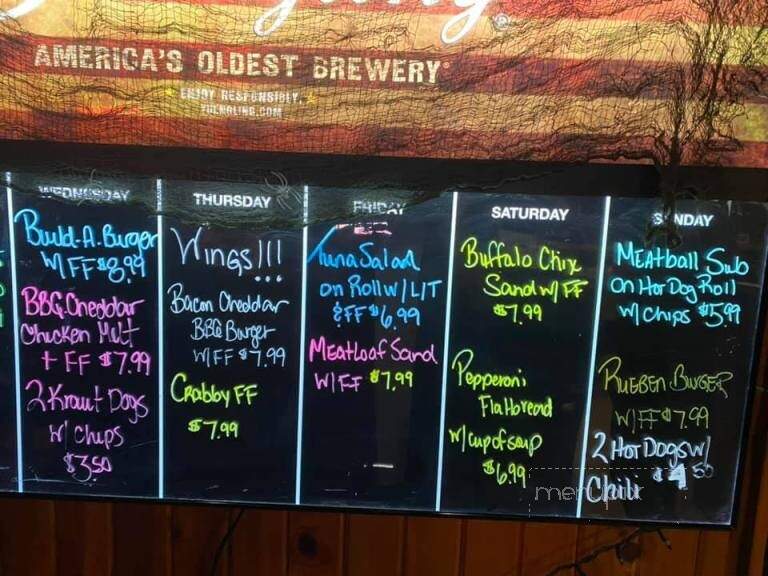 AMERICA'S OLDEST BREWERY
ENJOY RESPONSIBLY.
YUENGLING.COM
WEDNESDAY
Build-A-Burger
W/FF $8.99
BBQ Cheddar
Chicken Melt
+ FF $7.99
2 Kraut Dogs
W/ Chips
$3.50
THURSDAY
Wings!!!
Bacon Cheddar
BBQ Burger
W/FF $7.99
Crabby FF
$7.99
FRIDAY
Tuna Salad
on Roll W/L/T
&FF $6.99
Meatloaf Sand
W/FF $7.99
SATURDAY
Buffalo Chix
Sand W/ FF
$7.99
Pepperoni
Flatbread
W/ cup of soup
$6.99
SUNDAY
MEAtball Sub
on Hot Dog Roll
W/ Chips $5.99
RUEBEN BURGER
W/FF $7.99
2 Hot Dogs W/
Chili $4.50
menupix